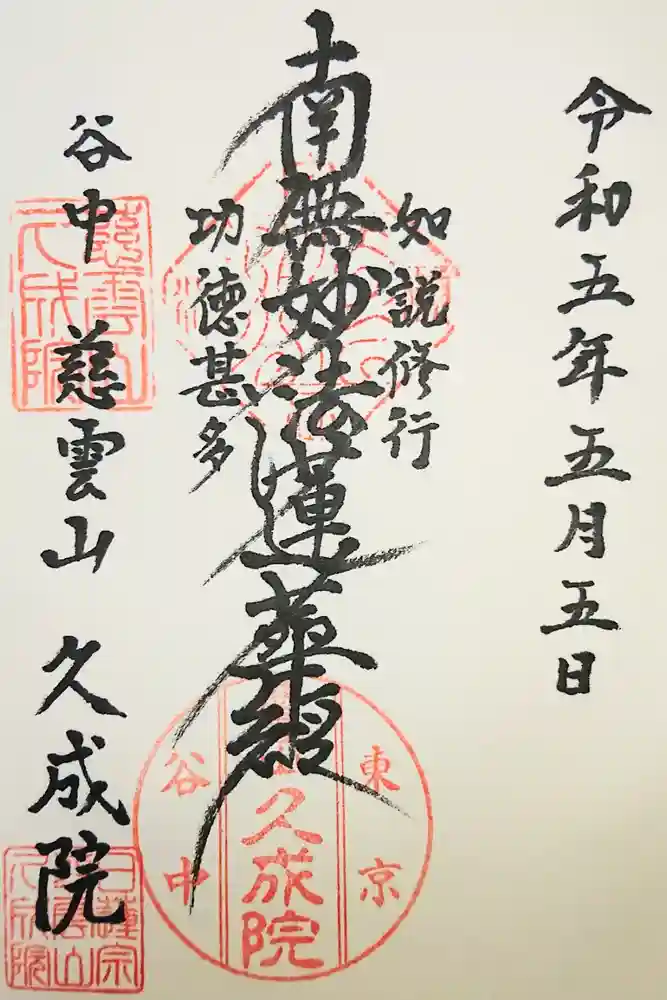 令和五年五月五日
如説修行
南無妙法蓮華經
功徳甚多
谷中 慈雲山 久成院
慈雲山
久成院
東京
久成院
谷中
日蓮宗
慈雲山
久成院